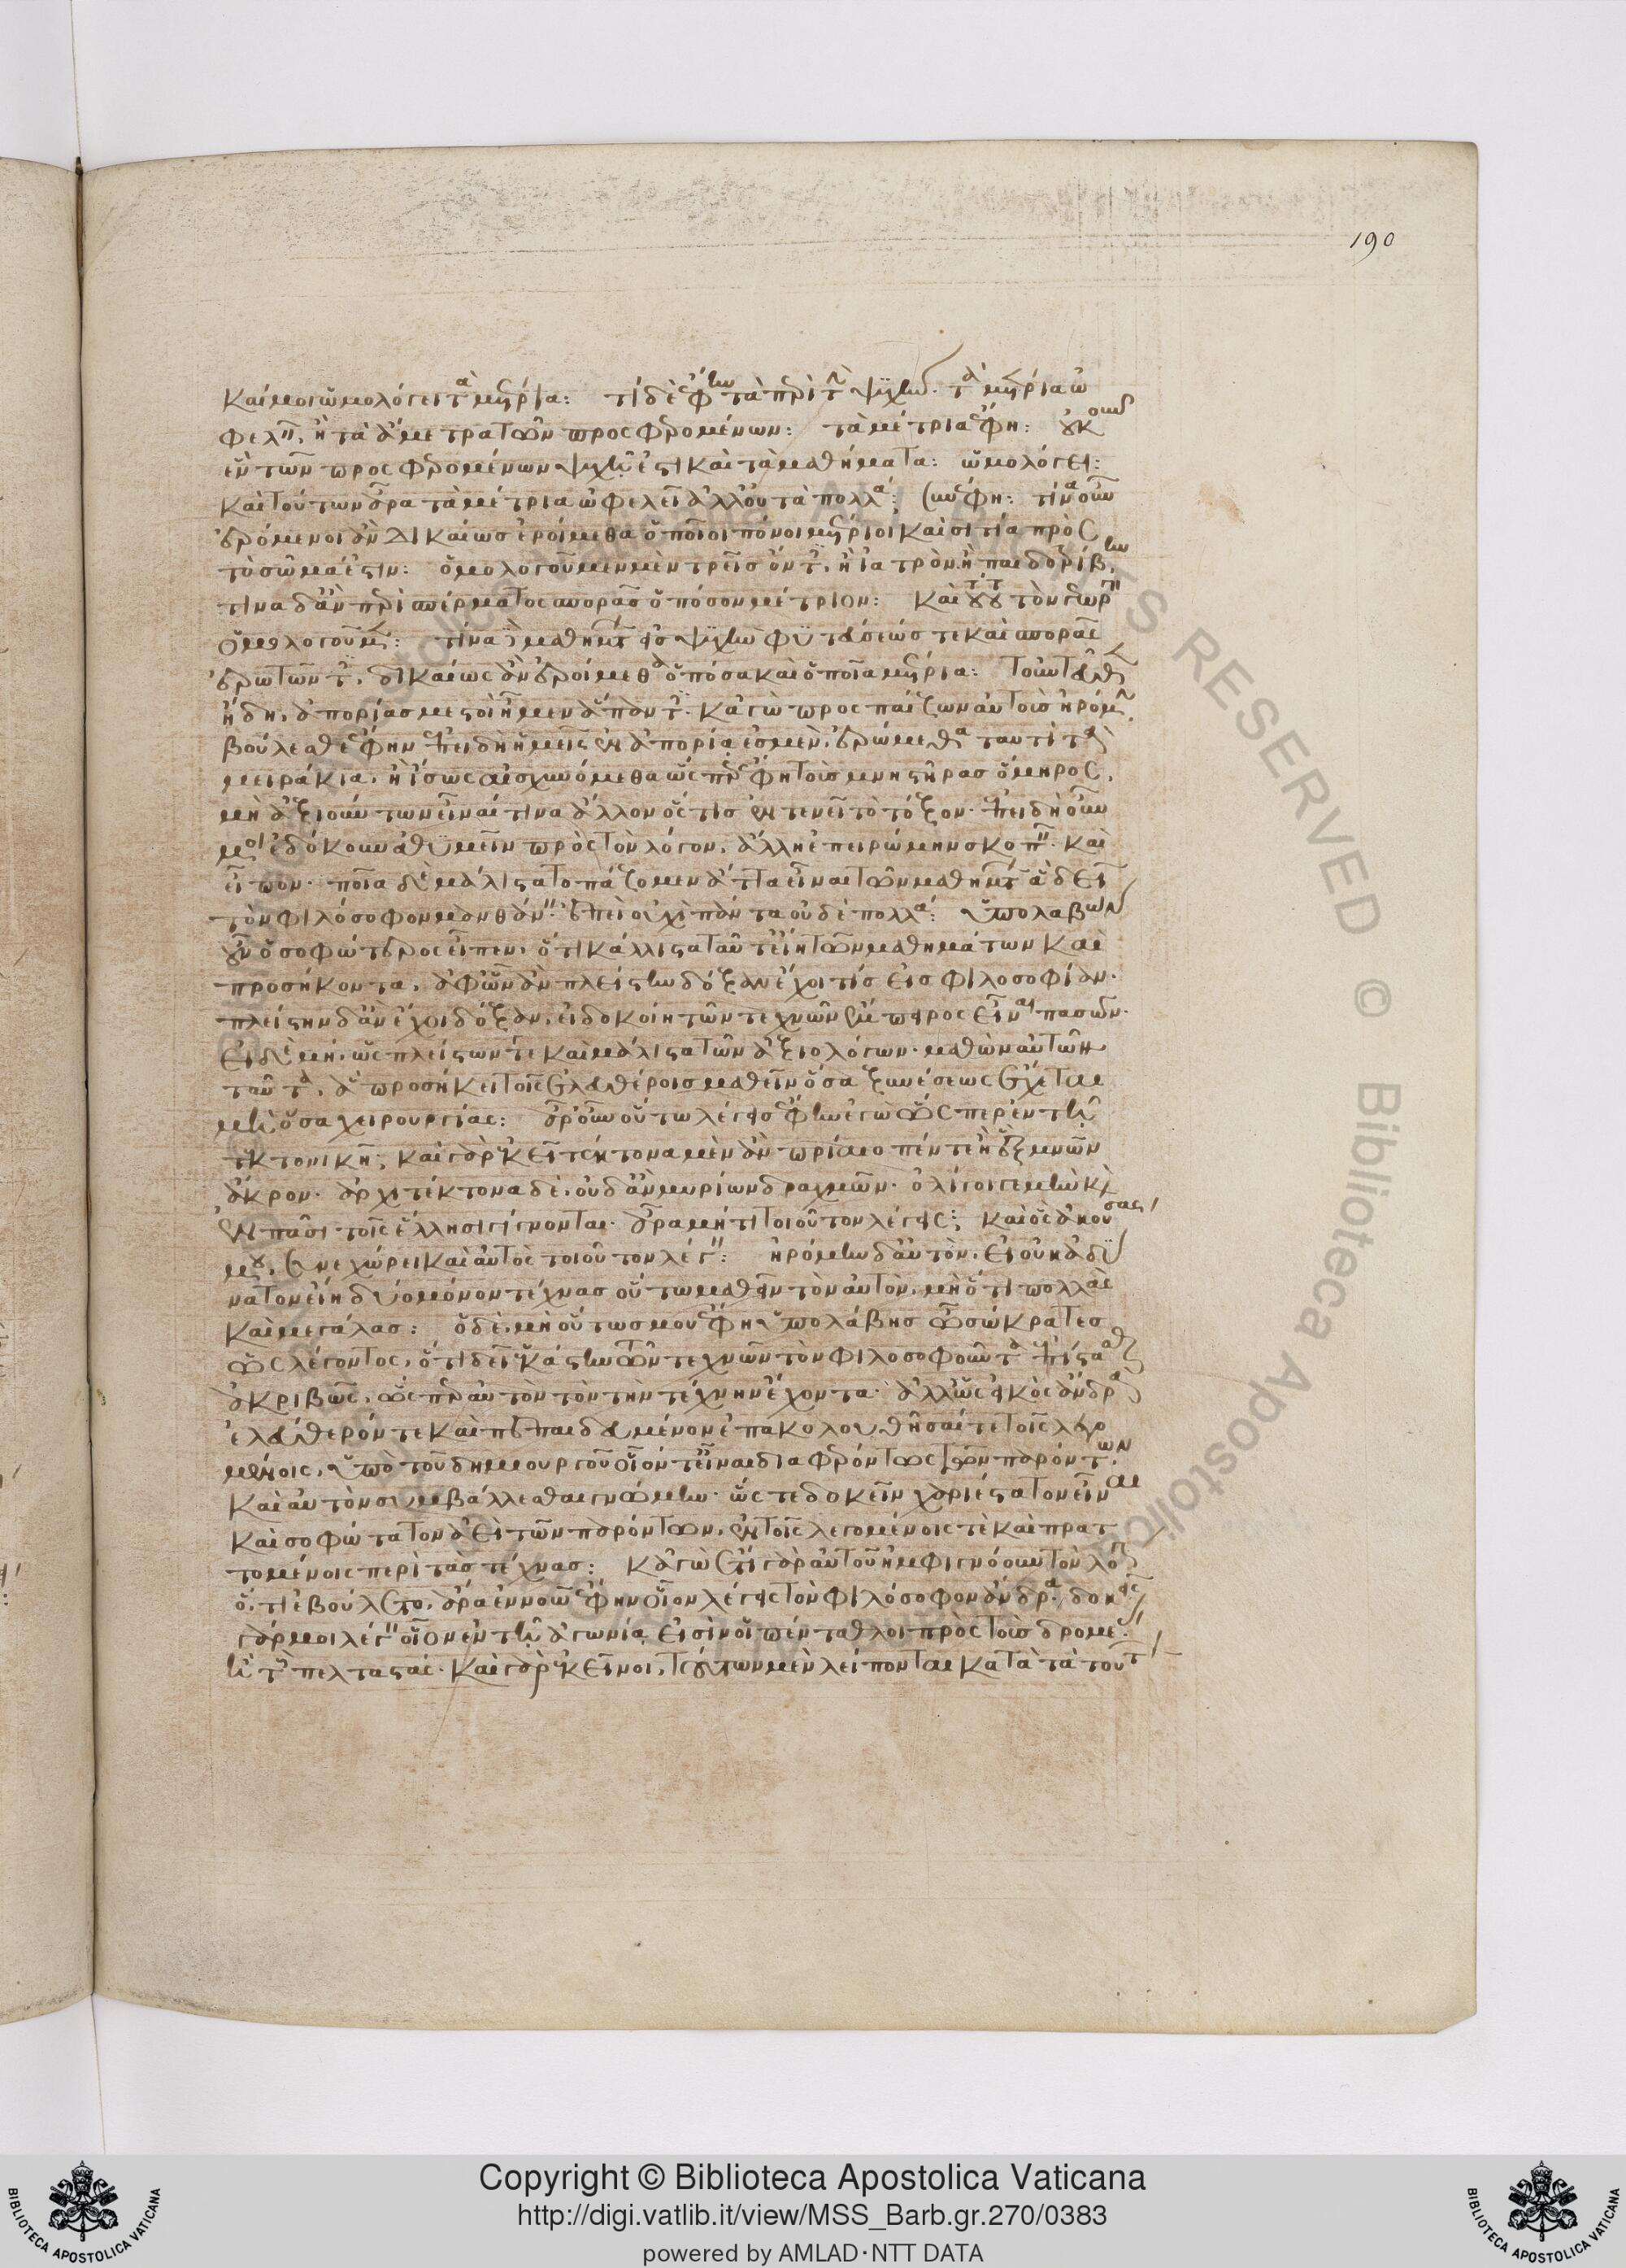 190
καί μοι ὡμολόγει τὰ μέτρια: τί δὲ ἔφην τὰ περὶ τὴν ψυχήν· τὰ μέτρια ὠ
φελεῖ, ἢ τὰ ἄμετρα τῶν προσφερομένων: τὰ μέτρια ἔφη: οὐκοῦν
ἓν τῶν προσφερομένων ψυχῇ ἐστὶ καὶ τὰ μαθήματα: ὡμολόγει:
καὶ τούτων ἄρα τὰ μέτρια ὠφελεῖ ἀλλ' οὐ τὰ πολλά: συνέφη: τίνα οὖν
ἐρόμενοι ἂν δικαίως ἐροίμεθα ὁποῖοι πόνοι μέτριοι καὶ σιτία πρὸς
τὸ σῶμά ἐστιν: ὁμολογοῦμεν μὲν τρεῖς ὄντες, ἢ ἰατρὸν, ἢ παιδοτρίβην,
τίνα δ' ἂν περὶ σπέρματος σπορᾶς ὁπόσον μέτριον: καὶ τούτου τὸν γεωργὸν
ὁμολογοῦμεν: τίνα δὲ μαθημάτων εἰς ψυχὴν φυτεύσεώς τε καὶ σπορᾶς
ἐρωτῶντες, δικαίως ἂν ἐροίμεθα ὁπόσα καὶ ὁποῖα μέτρια: τοὐντεῦθεν
ἤδη, ἀπορίας μεστοὶ ἦμεν ἅπαντες. κἀγὼ προσπαίζων αὐτοὺς ἠρόμην,
βούλεσθε ἔφην ἐπειδὴ ἡμεῖς ἐν ἀπορίᾳ ἐσμὲν, ἐρώμεθα ταυτὶ τὰ
μειράκια, ἢ ἴσως αἰσχυνόμεθα ὥσπερ ἔφη τοὺς μνηστῆρας ὅμηρος,
μὴ ἀξιούντων εἶναί τινα ἄλλον ὅστις ἐντενεῖ τὸ τόξον· ἐπειδὴ οὖν
μοι ἐδόκουν ἀθυμεῖν πρὸς τὸν λόγον, ἄλλη ἐπειρώμην σκοπεῖν. καὶ
εἶπον· ποῖα δὲ μάλιστα τοπάζομεν ἄττα εἶναι τῶν μαθημάτων ἃ δεῖ
τὸν φιλόσοφον μανθάνειν. ἐπεὶ οὐχὶ πάντα οὐδὲ πολλά: ὑπολαβὼν
οὖν ὁ σοφώτερος εἶπεν, ὅτι κάλλιστα ταῦτ' εἴη τῶν μαθημάτων καὶ
προσήκοντα, ἀφ' ὧν ἂν πλείστην δόξαν ἔχοι τίς εἰς φιλοσοφίαν.
πλείστην δ' ἂν ἔχοι δόξαν, εἰ δοκοίη τῶν τεχνῶν ἔμπειρος εἶναι πασῶν.
εἰ δὲ μή, ὡς πλείστων τε καὶ μάλιστα τῶν ἀξιολόγων. μαθὼν αὐτῶν
ταῦτα, ἃ προσήκει τοῖς ἐλευθέροις μαθεῖν ὅσα ξυνέσεως ἔχεται
μὴ ὅσα χειρουργίας: ἆρ' οὖν οὕτω λέγεις ἔφην ἐγὼ ὥσπερ ἐν τῇ
τεκτονικῇ; καὶ γὰρ ἐκεῖ τέκτονα μὲν ἂν πρίαιο πέντε ἢ ἓξ μνῶν
ἄκρον. ἀρχιτέκτονα δὲ, οὐδ' ἂν μυρίων δραχμῶν. ὀλίγοι γε μὴν κἂν
ἐν πᾶσι τοῖς ἕλλησι γίγνονται. ἆρα μή τι τοιοῦτον λέγεις; καὶ ὃς ἀκούσας
μου, συνεχώρει καὶ αὐτὸς τοιοῦτον λέγειν: ἠρόμην δ' αὐτὸν, εἰ οὐκ ἀδύ
νατον εἴη δύο μόνον τέχνας οὕτω μαθεῖν τὸν αὐτὸν, μὴ ὅτι πολλὰς
καὶ μεγάλας: ὁ δὲ, μὴ οὕτως μου ἔφη ὑπολάβης ὦ σώκρατες
ὡς λέγοντος, ὅτι δεῖ ἑκάστην τῶν τεχνῶν τὸν φιλοσοφοῦντα ἐπίστασθαι
ἀκριβῶς, ὥσπερ αὐτὸν τὸν τὴν τέχνην ἔχοντα. ἀλλ' ὡς εἰκὸς ἄνδρα
ἐλεύθερόν τε καὶ πεπαιδευμένον ἐπακολουθῆσαί τε τοῖς λεγο
μένοις, ὑπὸ τοῦ δημιουργοῦ οἷόν τ' εἶναι διαφερόντως τῶν παρόντων,
καὶ αὐτὸν συμβάλλεσθαι γνώμην. ὥστε δοκεῖν χαριέστατον εἶναι
καὶ σοφώτατον ἀεὶ τῶν παρόντων, ἐν τοῖς λεγομένοις τὲ καὶ πρατ
τομένοις περὶ τὰς τέχνας: κἀγὼ ἔτι γὰρ αὐτοῦ ἠμφιγνόουν τὸν λόγον
ὅ,τι ἐβούλετο, ἆρα ἐννοῶ ἔφην οἷον λέγεις τὸν φιλόσοφον ἄνδρα, δοκεῖς
γάρ μοι λέγειν οἷον ἐν τῇ ἀγωνίᾳ εἰσὶν οἱ πένταθλοι πρὸς τοὺς δρομέας
ἢ τοὺς πελταστάς. καὶ γὰρ ἐκεῖνοι, τούτων μὲν λείπονται κατὰ τὰ τούτων
Copyright © Biblioteca Apostolica Vaticana
http://digi.vatlib.it/view/MSS_Barb.gr.270/0383
powered by AMLAD·NTT DATA